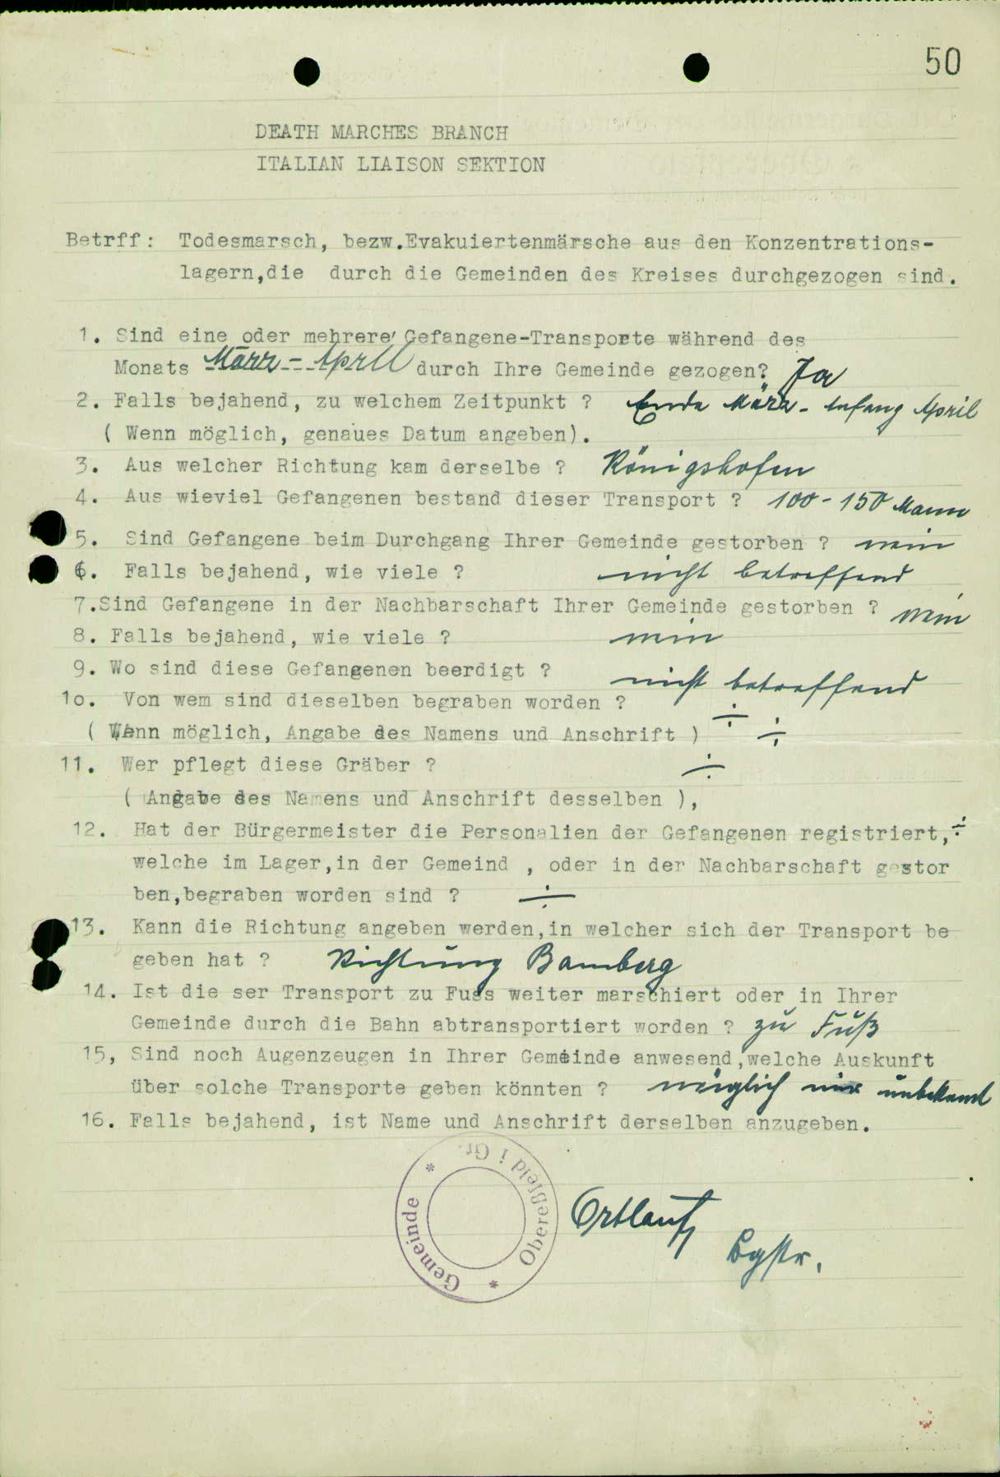 50
DEATH MARCHES BRANCH
ITALIAN LIAISON SEKTION
Betrff: Todesmarsch, bezw.Evakuiertenmärsche aus den Konzentrations-
lagern,die durch die Gemeinden des Kreises durchgezogen sind.
1. Sind eine oder mehrere Gefangene-Transporte während des
Monats März - April durch Ihre Gemeinde gezogen? Ja
2. Falls bejahend, zu welchem Zeitpunkt ? Ende März - Anfang April
( Wenn möglich, genaues Datum angeben).
3. Aus welcher Richtung kam derselbe ? Königshofen
4. Aus wieviel Gefangenen bestand dieser Transport ? 100 - 150 Mann
5. Sind Gefangene beim Durchgang Ihrer Gemeinde gestorben ? nein
6. Falls bejahend, wie viele ? nicht betreffend
7.Sind Gefangene in der Nachbarschaft Ihrer Gemeinde gestorben ? nein
8. Falls bejahend, wie viele ? nein
9. Wo sind diese Gefangenen beerdigt ? nicht betreffend
1o. Von wem sind dieselben begraben worden ? ÷
( Wenn möglich, Angabe des Namens und Anschrift ) ÷
11. Wer pflegt diese Gräber ? ÷
( Angabe des Namens und Anschrift desselben ),
12. Hat der Bürgermeister die Personalien der Gefangenen registriert, ÷
welche im Lager,in der Gemeind , oder in der Nachbarschaft gestor
ben,begraben worden sind ? ÷
13. Kann die Richtung angeben werden,in welcher sich der Transport be
geben hat ? Richtung Bamberg
14. Ist die ser Transport zu Fuss weiter marschiert oder in Ihrer
Gemeinde durch die Bahn abtransportiert worden ? zu Fuß
15, Sind noch Augenzeugen in Ihrer Gemeinde anwesend,welche Auskunft
über solche Transporte geben könnten ? möglich mir unbekannt
16. Falls bejahend, ist Name und Anschrift derselben anzugeben.
Gemeinde * Obereßfeld i Gr. *
Ortlauf
Bgstr.